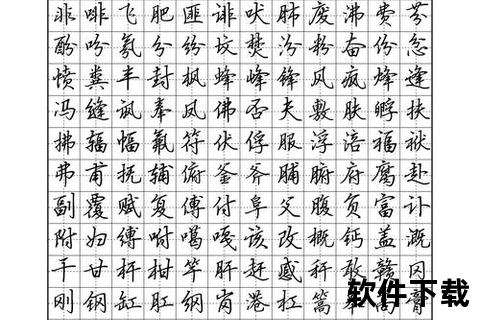 非啡飞肥匪诽吠肺废沸费芬
酚吩氛分纷坟焚汾粉奋份忿
愤粪丰封枫蜂峰锋风疯烽逢
冯缝讽奉凤佛否夫敷肤孵扶
拂辐幅氟符伏俘服浮涪福袱
弗甫抚辅俯釜斧脯腑府腐赴
副覆赋复傅付阜父腹负富讣
附妇缚咐噶嘎该改概钙盖溉
干甘杆柑竿肝赶感秆敢赣冈
刚钢缸肛纲岗港杠篙膏
软件下载